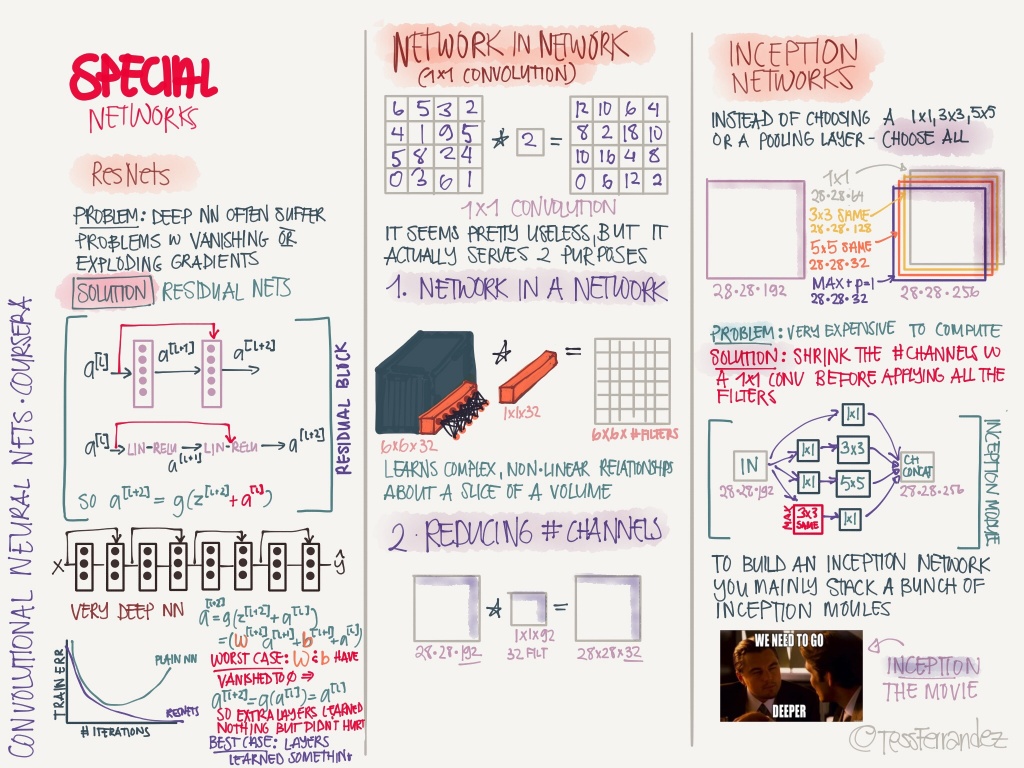 CONVOLUTIONAL NEURAL NETS · COURSERA
SPECIAL
NETWORKS
ResNets
PROBLEM: DEEP NN OFTEN SUFFER
PROBLEMS W VANISHING OR
EXPLODING GRADIENTS
SOLUTION RESIDUAL NETS
a[l] a[l+1] a[l+2]
a[l] LIN-RELU LIN-RELU a[l+2]
a[l+1]
SO a[l+2] = g(z[l+2] + a[l])
RESIDUAL BLOCK
X ŷ
VERY DEEP NN
a[l+2] = g(z[l+2] + a[l])
= (W[l+2] a[l+1] + b[l+2] + a[l])
WORST CASE: W & b HAVE
VANISHED TO 0 ⇒
a[l+2] = g(a[l]) = a[l]
SO EXTRA LAYERS LEARNED
NOTHING BUT DIDNT HURT
BEST CASE: LAYERS
LEARNED SOMETHIN
TRAIN ERR
PLAIN NN
RESNETS
# ITERATIONS
NETWORK IN NETWORK
(1x1 CONVOLUTION)
6 5 3 2 12 10 6 4
4 1 9 5 * 2 = 8 2 18 10
5 8 2 4 10 16 4 8
0 3 6 1 0 6 12 2
1X1 CONVOLUTION
IT SEEMS PRETTY USELESS, BUT IT
ACTUALLY SERVES 2 PURPOSES
1. NETWORK IN A NETWORK
* =
6x6x32 1x1x32 6x6x #FILTERS
LEARNS COMPLEX, NON-LINEAR RELATIONSHIPS
ABOUT A SLICE OF A VOLUME
2. REDUCING # CHANNELS
* =
28·28·192 1x1x92 28x28x32
32 FILT
INCEPTION
NETWORKS
INSTEAD OF CHOOSING A 1x1, 3x3, 5x5
OR A POOLING LAYER - CHOOSE ALL
1x1
28·28·64
3x3 SAME
28·28·128
5x5 SAME
28·28·32
MAX + p=1
28·28·32
28·28·192 28·28·256
PROBLEM: VERY EXPENSIVE TO COMPUTE
SOLUTION: SHRINK THE #CHANNELS W
A 1x1 CONV BEFORE APPLYING ALL THE
FILTERS
1x1
1x1 3x3
IN CH CONCAT
28·28·192 1x1 5x5 28·28·256
MAX 3x3 SAME 1x1
INCEPTION MODULE
TO BUILD AN INCEPTION NETWORK
YOU MAINLY STACK A BUNCH OF
INCEPTION MOULES
WE NEED TO GO
DEEPER
INCEPTION
THE MOVIE
©TessFerrandez